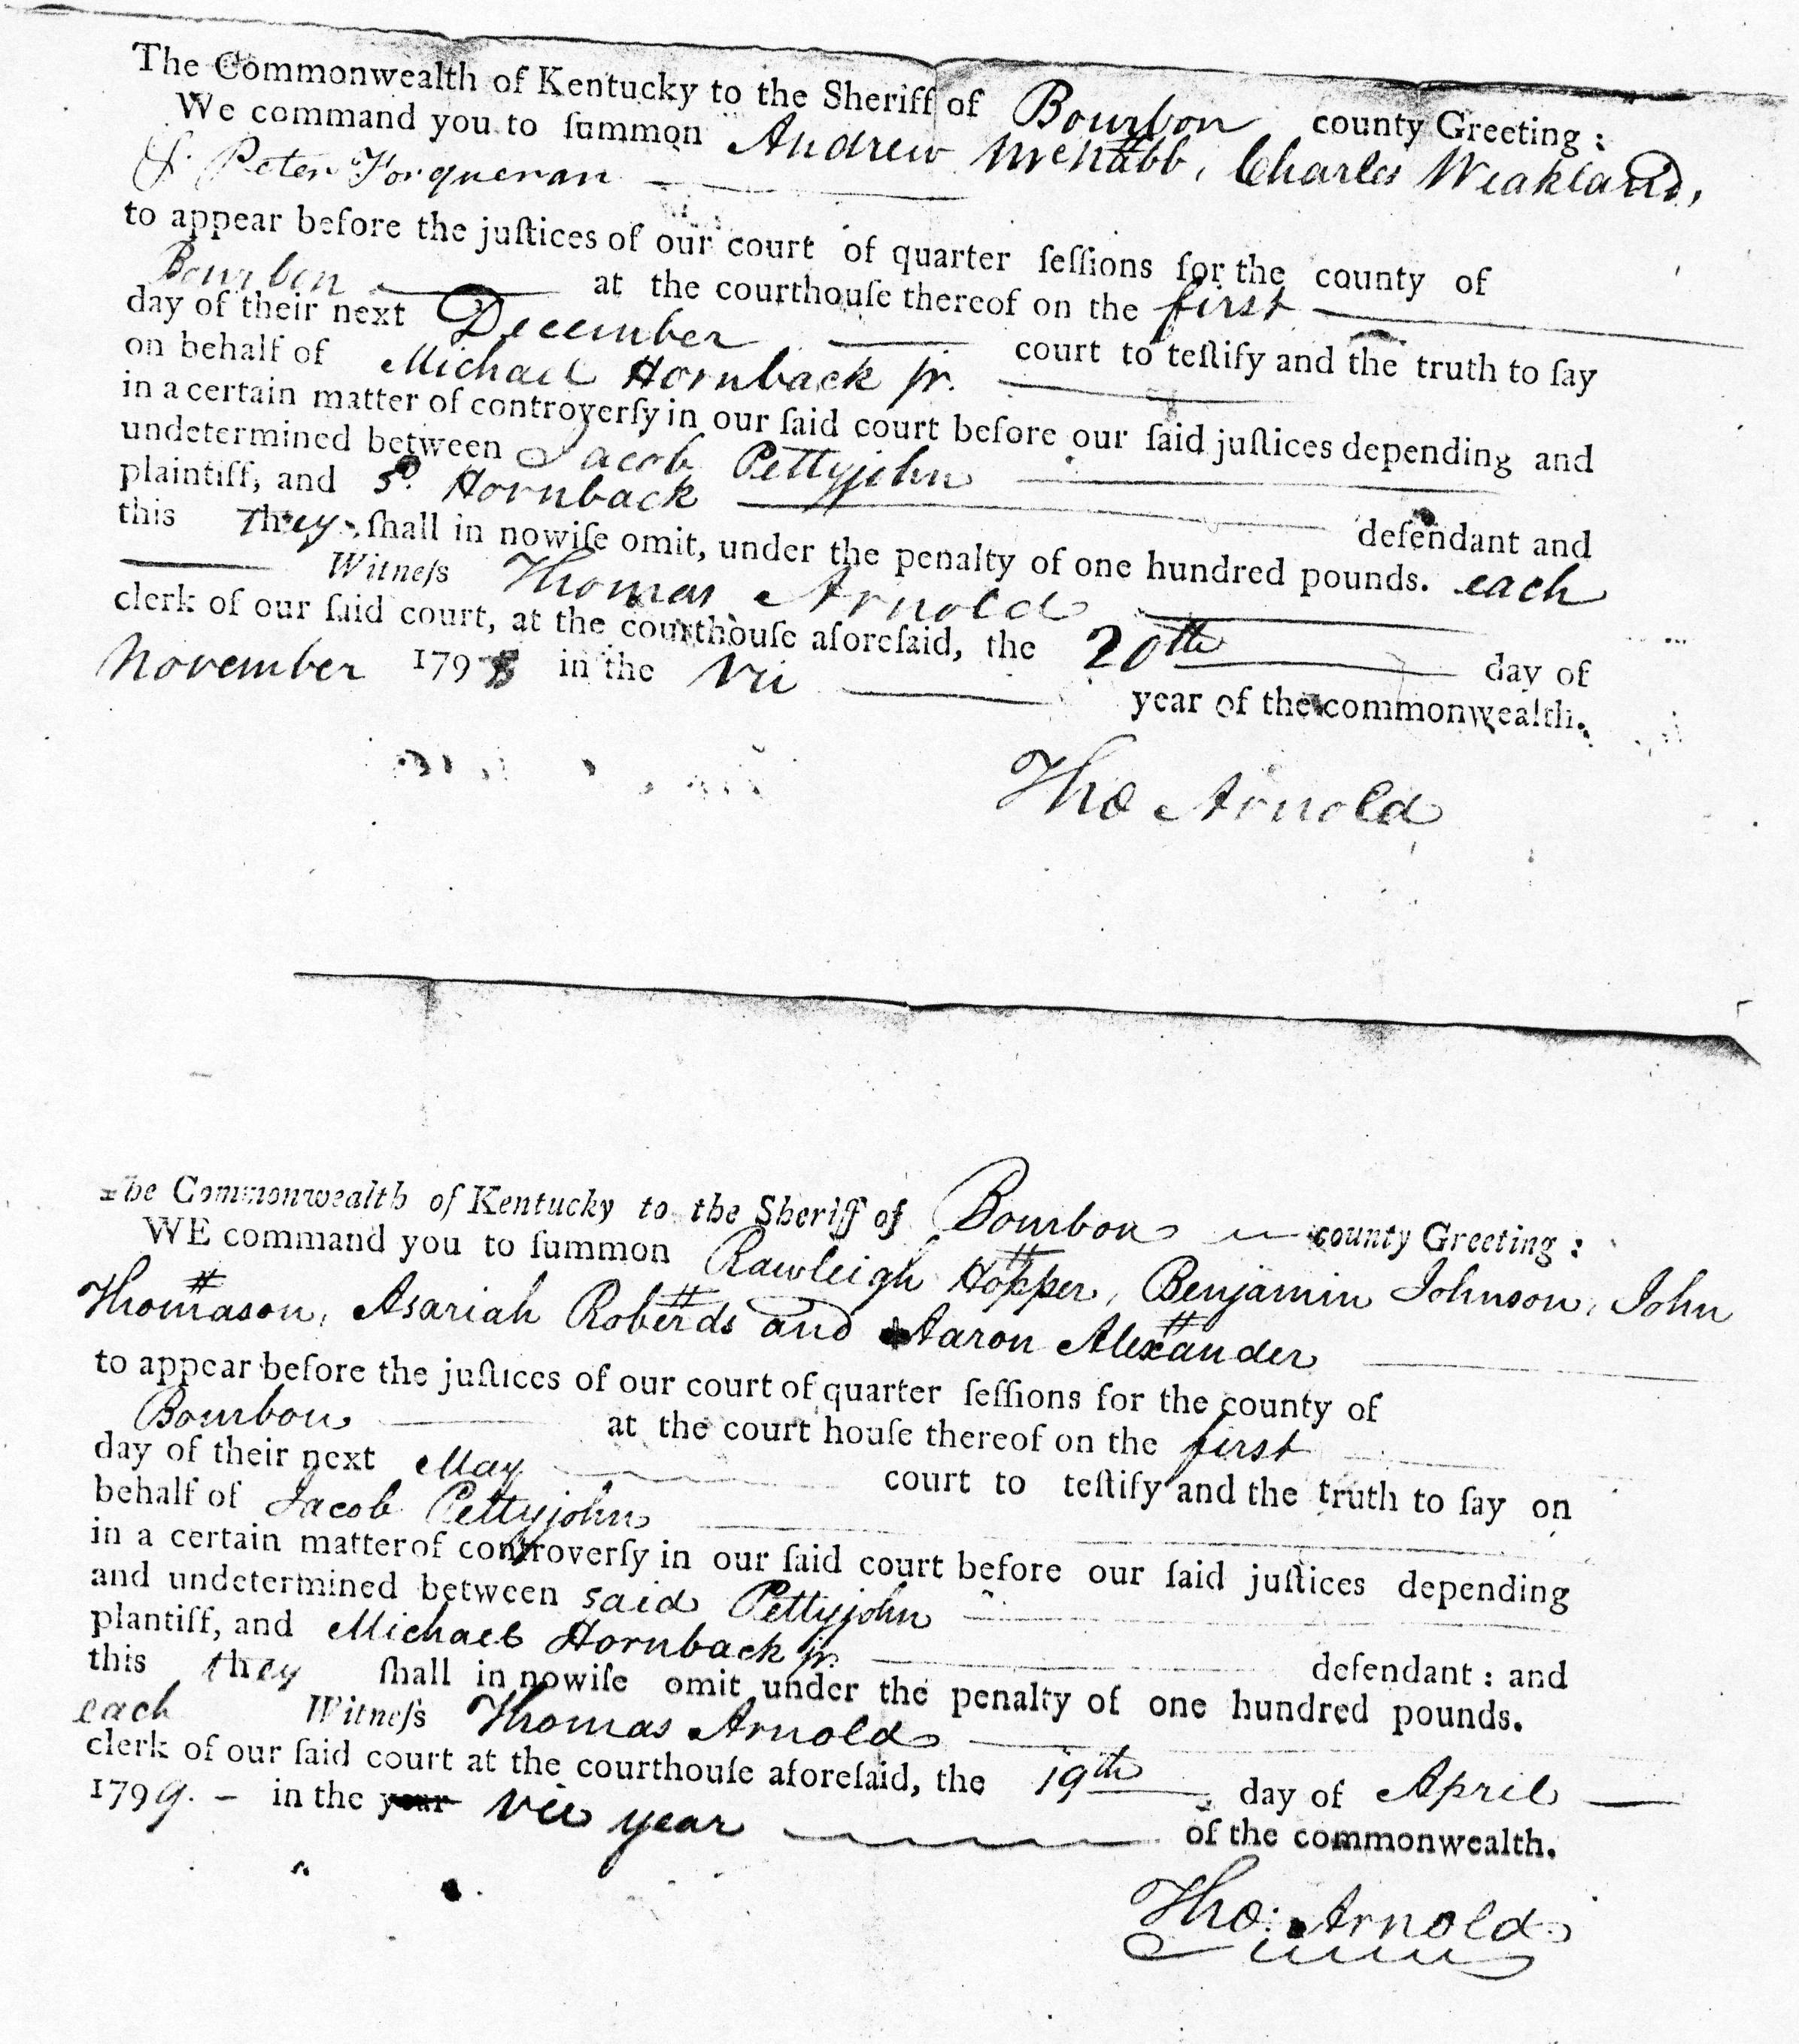 The Commonwealth of Kentucky to the Sheriff of Bourbon county Greeting:
We command you to ſummon Andrew McNabb, Charles Weakland,
& Peter Forqueran
to appear before the juſtices of our court of quarter ſeſſions for the county of
Bourbon at the courthouſe thereof on the first
day of their next December court to teſtify and the truth to ſay
on behalf of Michael Hornback jr.
in a certain matter of controverſy in our ſaid court before our ſaid juſtices depending and
undetermined between Jacob Pettyjohn
plaintiff, and sd. Hornback defendant and
this they ſhall in nowiſe omit, under the penalty of one hundred pounds. each
Witneſs Thomas Arnold
clerk of our ſaid court, at the courthouſe aforeſaid, the 20th day of
November 1798 in the vii year of the commonwealth.
Tho Arnold
The Commonwealth of Kentucky to the Sheriff of Bourbon county Greeting:
WE command you to ſummon Rawleigh Hopper, Benjamin Johnson, John
Thomason, Asariah Roberds and Aaron Alexander
to appear before the juſtices of our court of quarter ſeſſions for the county of
Bourbon at the court houſe thereof on the first
day of their next May court to teſtify and the truth to ſay on
behalf of Jacob Pettyjohn
in a certain matter of controverſy in our ſaid court before our ſaid juſtices depending
and undetermined between said Pettyjohn
plantiff, and Michael Hornback jr. defendant: and
this they ſhall in nowiſe omit under the penalty of one hundred pounds.
each Witneſs Thomas Arnold
clerk of our ſaid court at the courthouſe aforeſaid, the 19th day of April
1799. - in the year vii year of the commonwealth.
Tho: Arnold